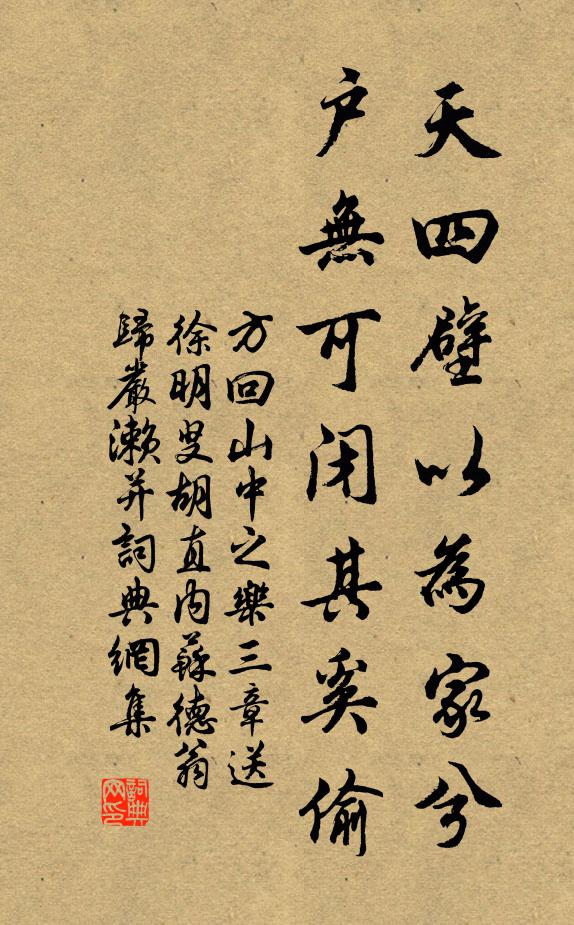 天四壁以為家兮
户無可閉其奚偷
方回山中之樂三章送
徐明叟胡直内蘇德翁
歸嚴瀨并詞典網集
詞典网印